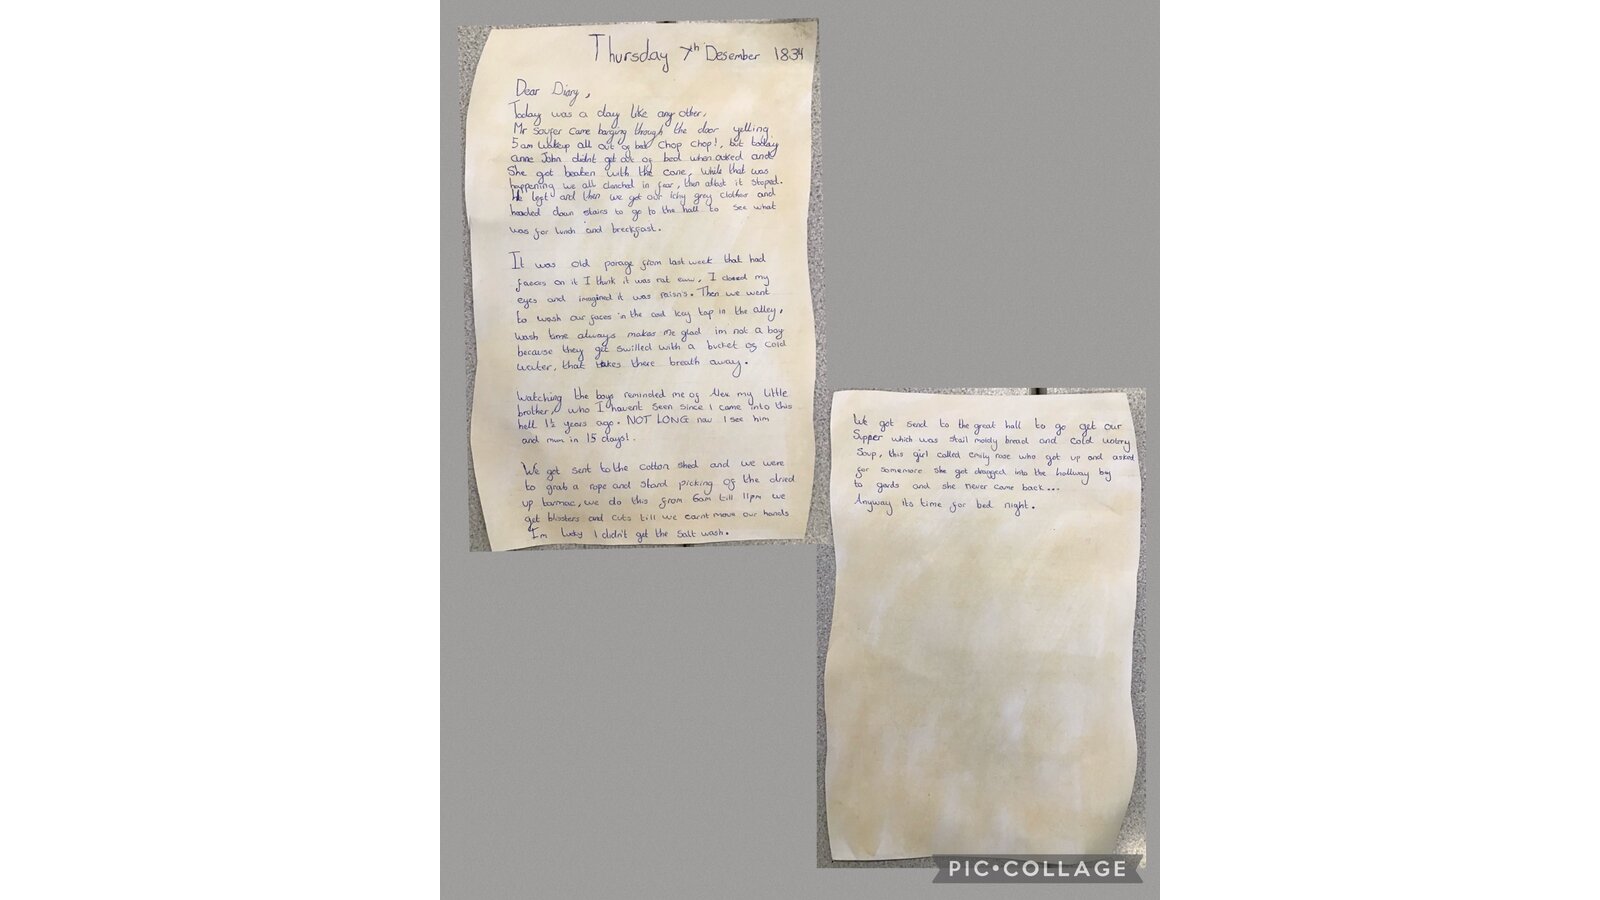 Thursday 7th Desember 1834
Dear Diary,
Today was a day like any other,
Mr Soufer came banging through the door yelling
5am wakeup all out of bed chop chop!, but today
anne John didnt get out of bed when asked and
She got beaten with the cane, while that was
happening we all clenched in fear, then atlast it stoped.
He left and then we got our ichy grey clothes and
headed down stairs to go to the hall to see what
was for lunch and breckfast.
It was old porage from last week that had
faeces on it I think it was rat eww, I closed my
eyes and imagined it was raisn's. Then we went
to wash our faces in the cold icey tap in the alley,
wash time always makes me glad im not a boy
because they get swilled with a bucket of cold
water, that takes there breath away.
Watching the boys reminded me of Alex my little
brother, who I havent seen since I came into this
hell 1½ years ago. NOT LONG now I see him
and mum in 15 days!.
We got sent to the cotton shed and we were
to grab a rope and stard picking of the dried
up tarmac, we do this from 6am till 11pm we
get blissters and cuts till we carnt move our hands
I'm lucky I didn't get the salt wash.
We got send to the great hall to go get our
Supper which was stail moldy bread and cold watery
Soup, this girl called emily rose who got up and asked
for somemore she got dragged into the hallway by
to gards and she never came back...
Anyway its time for bed night.
PIC•COLLAGE